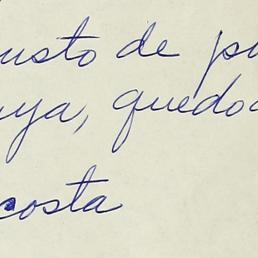 usto de pu
uya, quedo
costa